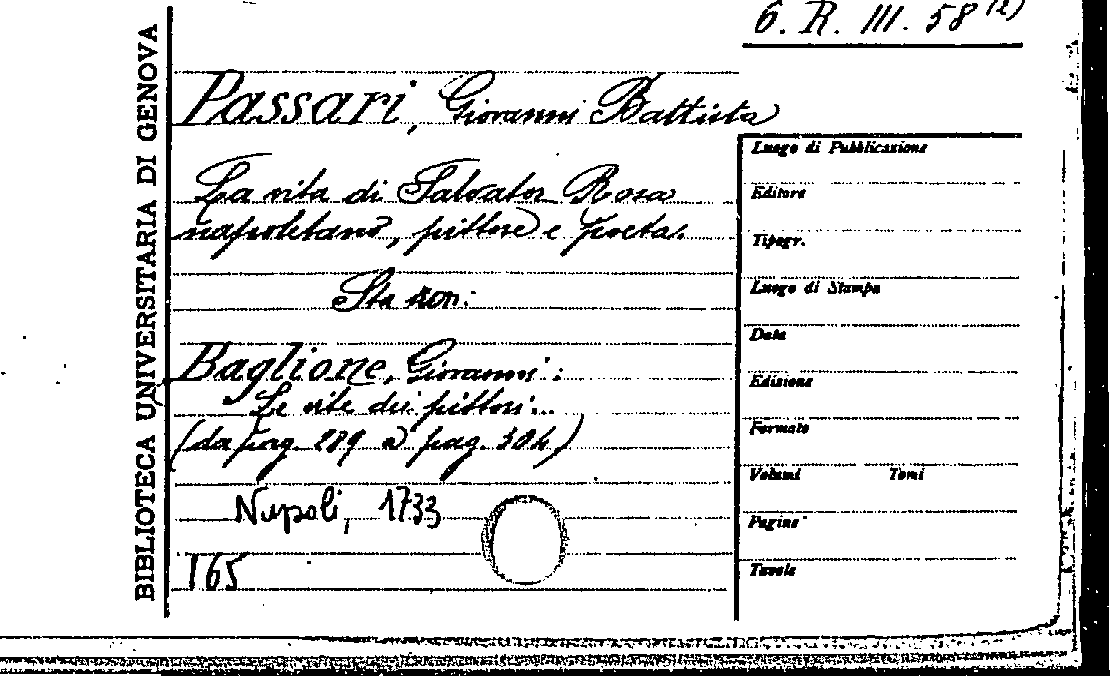 6. R. III. 58 (2)
BIBLIOTECA UNIVERSITARIA DI GENOVA
Passari, Giovanni Battista
La vita di Salvator Rosa
napoletano, pittore e poeta.
Sta con:
Baglione, Giovanni:
Le vite dei pittori...
(da pag. 289 a pag. 304)
Napoli, 1733
165
Luogo di Pubblicazione
Editore
Tipogr.
Luogo di Stampa
Data
Edizione
Formato
Volumi Tomi
Pagine
Tavole